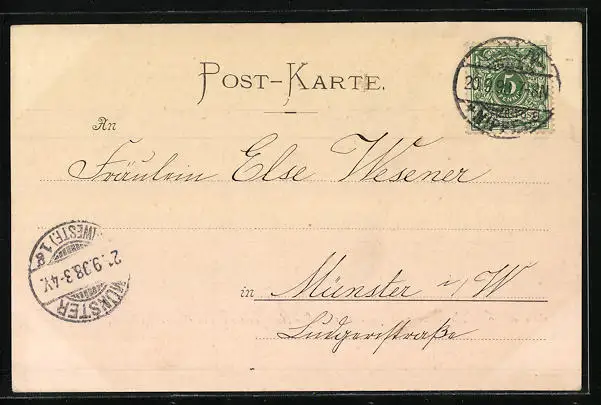 POST-KARTE.
5
20.9.9
An
Fräulein Else Wesener
in Münster i/W
Ludgeristraße
MÜNSTER
(WESTF.) 1
21.9.98.3-4V.